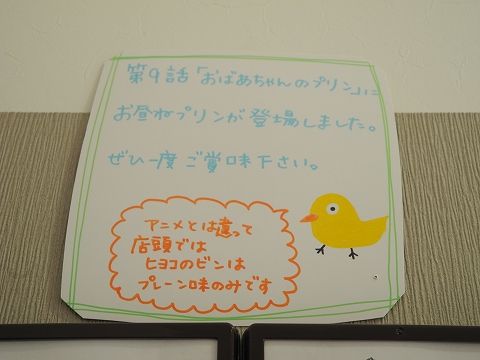 第9話「おばあちゃんのプリン」に
お昼ねプリンが登場しました。
ぜひ一度ご賞味下さい。
アニメとは違って
店頭では
ヒヨコのビンは
プレーン味のみです